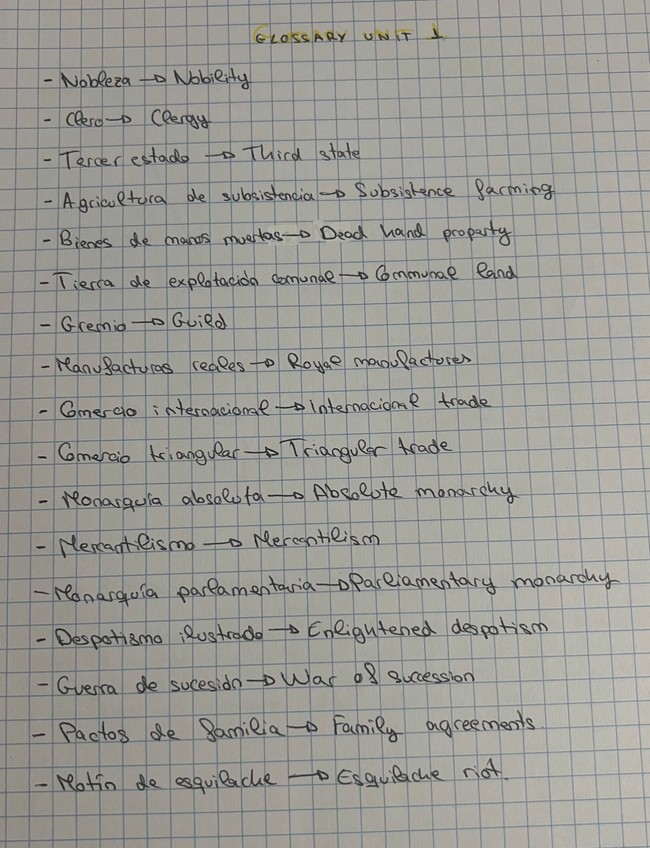 GLOSSARY UNIT 1
- Nobleza → Nobility
- Clero → Clergy
- Tercer estado → Third state
- Agricultura de subsistencia → Subsistence farming
- Bienes de manos muertas → Dead hand property
- Tierra de explotación comunal → Communal land
- Gremio → Guild
- Manufacturas reales → Royal manufactures
- Comercio internacional → Internacional trade
- Comercio triangular → Triangular trade
- Monarquía absoluta → Absolute monarchy
- Mercantilismo → Mercantilism
- Monarquía parlamentaria → Parliamentary monarchy
- Despotismo ilustrado → Enlightened despotism
- Guerra de sucesión → War of succession
- Pactos de familia → Family agreements
- Motín de esquilache → Esquilache riot.